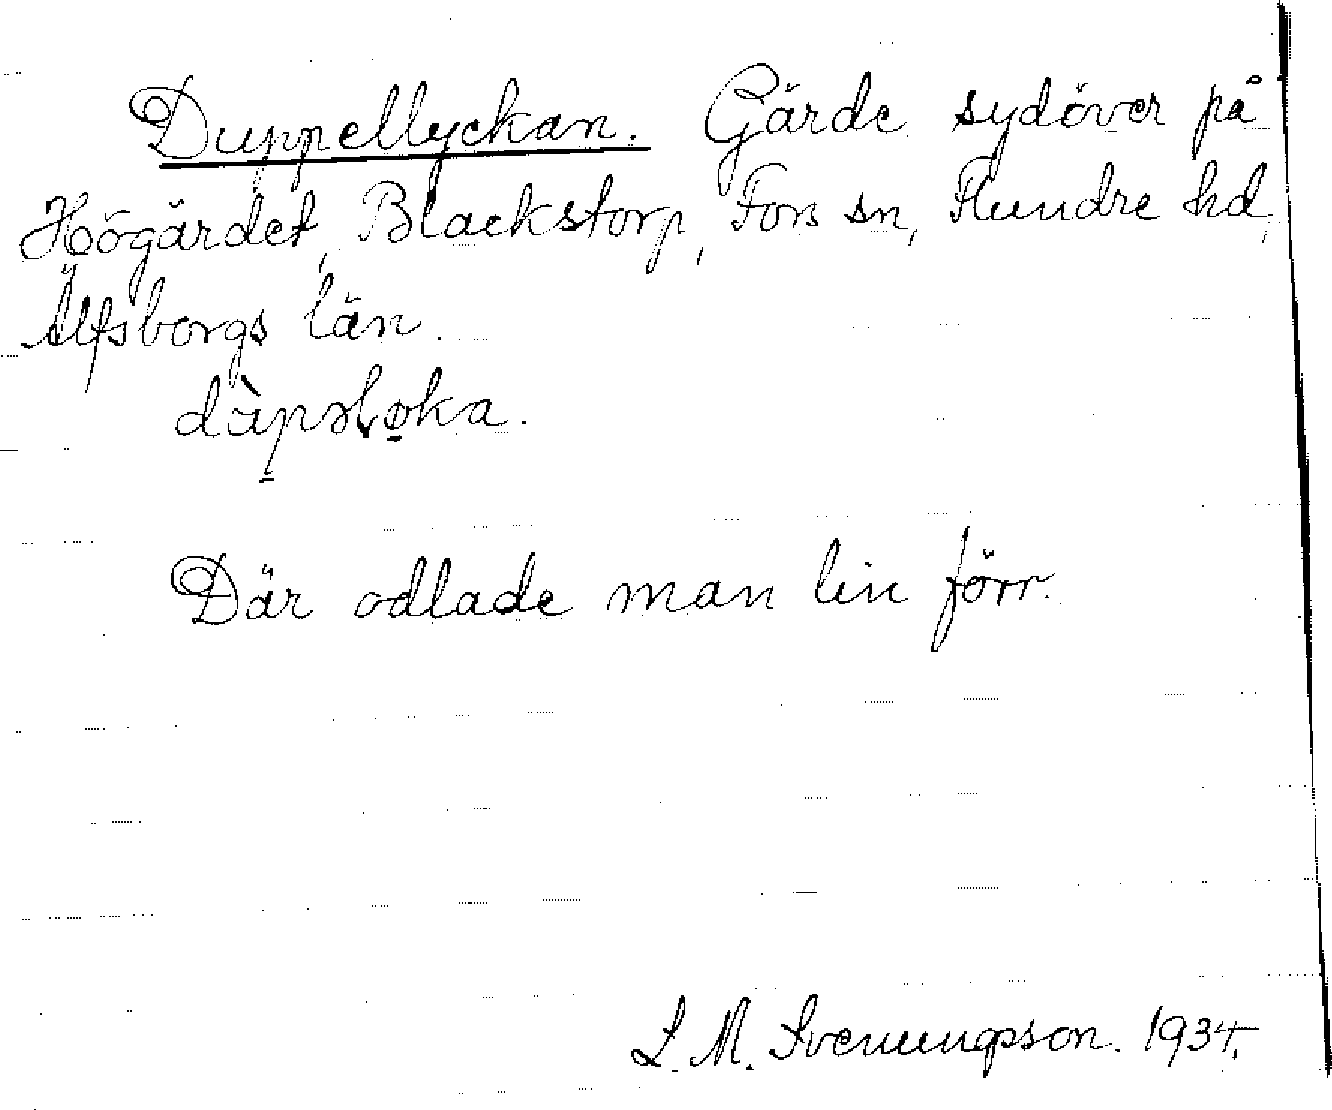 Duppellyckan. Gärde sydöver på
Högärdet, Blackstorp, Fors sn, Flundre hd,
Älfsborgs län.
dàpəløka.
Där odlade man lin förr.
L. M. Svenungsson. 1934.